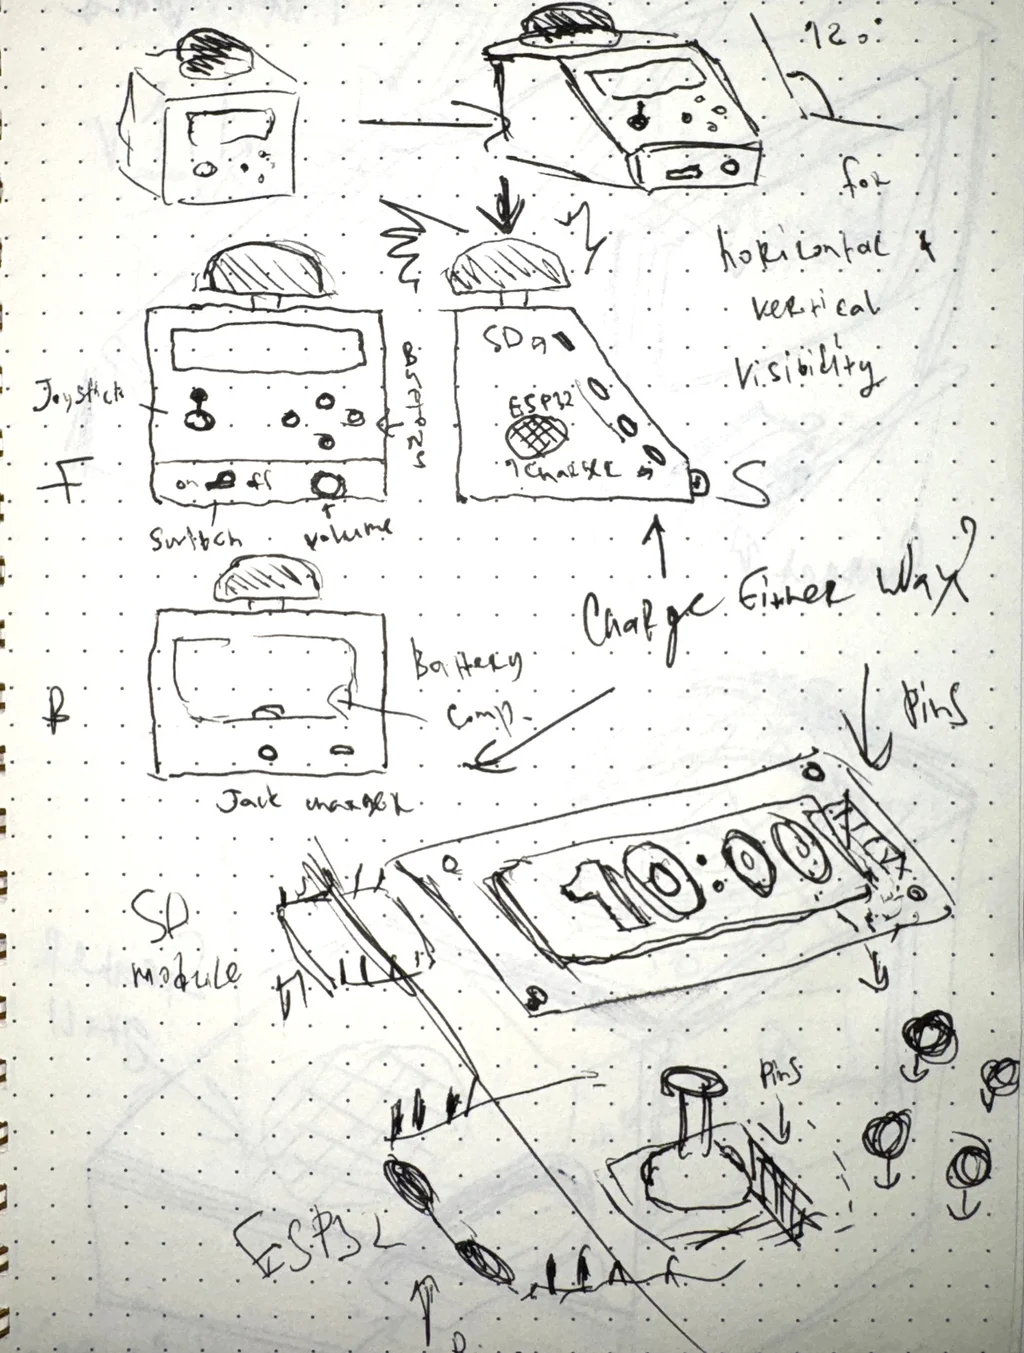 120°
for
horizontal &
vertical
visibility
SD
Joystick
ESP32
charger
F
on off
S
Switch
volume
Charge Either Way?
B
Battery
Comp.
Jack charger
Pins
10:00
SD
module
Pins
ESP32